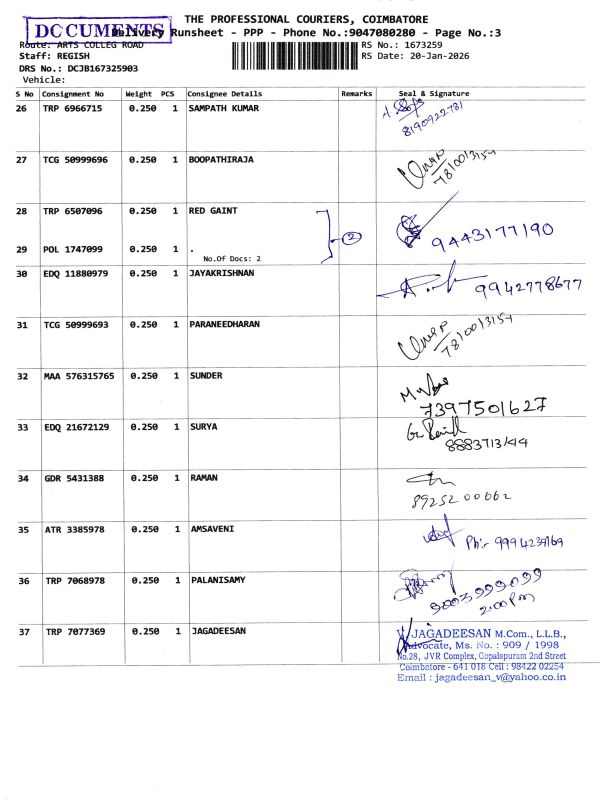 THE PROFESSIONAL COURIERS, COIMBATORE
DOCUMENTS
Delivery Runsheet - PPP - Phone No.:9047080280 - Page No.:3
Route: ARTS COLLEG ROAD
RS No.: 1673259
Staff: REGISH
RS Date: 20-Jan-2026
DRS No.: DCJB167325903
Vehicle:
S No Consignment No Weight PCS Consignee Details Remarks Seal & Signature
26 TRP 6966715 0.250 1 SAMPATH KUMAR
8190922781
27 TCG 50999696 0.250 1 BOOPATHIRAJA
7810013154
28 TRP 6507096 0.250 1 RED GAINT
2 9443177190
29 POL 1747099 0.250 1 .
No.Of Docs: 2
30 EDQ 11880979 0.250 1 JAYAKRISHNAN
9942778677
31 TCG 50999693 0.250 1 PARANEEDHARAN
7810013154
32 MAA 576315765 0.250 1 SUNDER
7397501627
33 EDQ 21672129 0.250 1 SURYA
8883713144
34 GDR 5431388 0.250 1 RAMAN
8925200662
35 ATR 3385978 0.250 1 AMSAVENI
Ph:- 9994239169
36 TRP 7068978 0.250 1 PALANISAMY
9003999099
2:00 Pm
37 TRP 7077369 0.250 1 JAGADEESAN
V. JAGADEESAN M.Com., L.L.B.,
Advocate, Ms. No. : 909 / 1998
No.28, JVR Complex, Gopalapuram 2nd Street
Coimbatore - 641 018 Cell : 98422 02254
Email : jagadeesan_v@yahoo.co.in